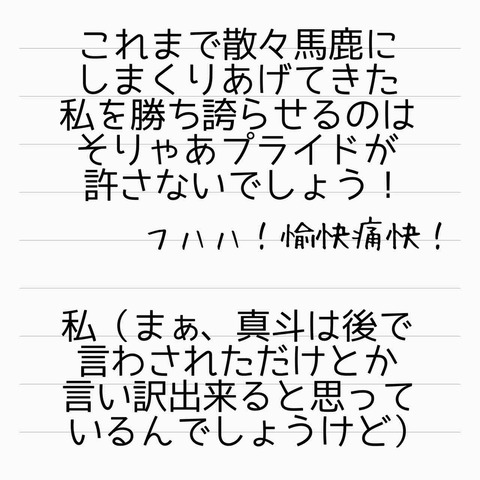 これまで散々馬鹿に
しまくりあげてきた
私を勝ち誇らせるのは
そりゃあプライドが
許さないでしょう！
フハハ！愉快痛快！
私（まぁ、真斗は後で
言わされただけとか
言い訳出来ると思って
いるんでしょうけど）